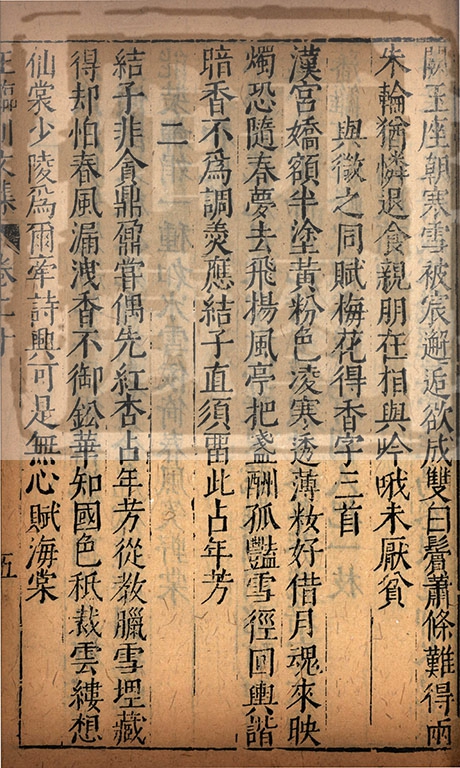 闕王座朝寒雪被宸邂逅欲成雙白鬢蕭條難得兩
朱輪猶憐退食親朋在相與吟哦未厭貧
與微之同賦梅花得香字三首
漢宮嬌額半塗黃粉色凌寒透薄妝好借月魂來映
燭恐隨春夢去飛揚風亭把盞酬孤豔雪徑回輿認
暗香不爲調羹應結子直須畱此占年芳
二
結子非貪鼎鼐嘗偶先紅杏占年芳從教臘雪埋藏
得却怕春風漏洩香不御鉛華知國色秖裁雲縷想
仙裳少陵爲爾牽詩興可是無心賦海棠
川文集 卷二十 五